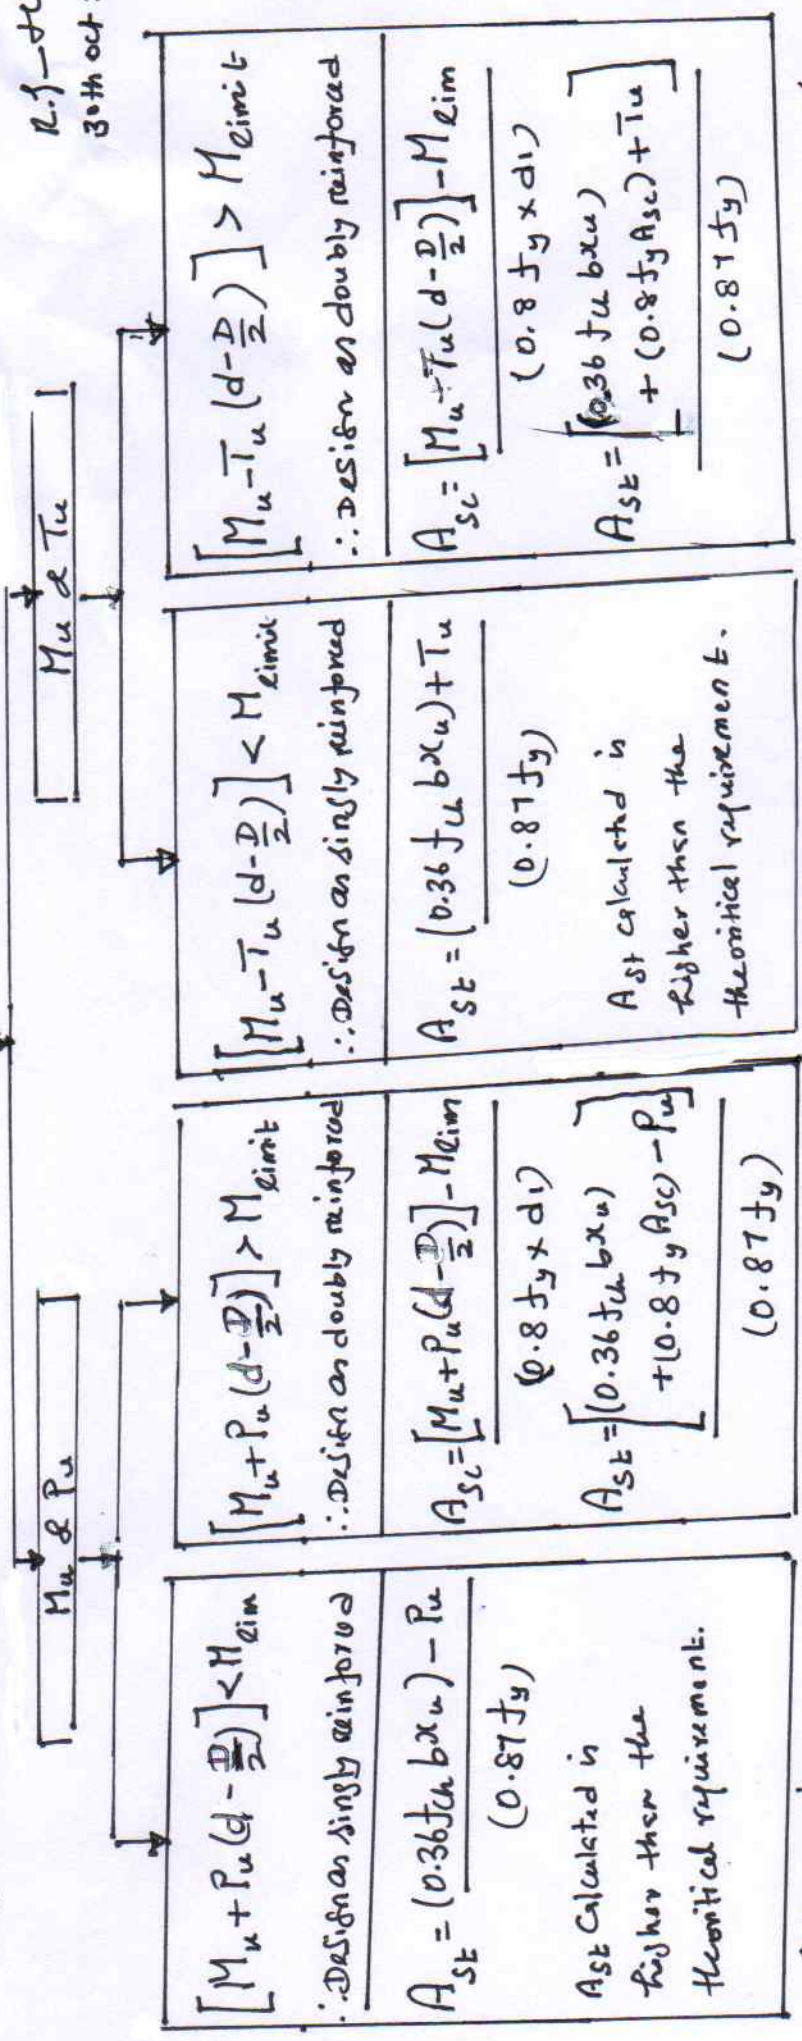 30th oct
Mu & Pu
Mu & Tu
[Mu + Pu (d - D/2)] < Mlim
∴ Design as singly reinforced
Ast = (0.36 fck b xu) - Pu
(0.87 fy)
Ast Calculated is
higher than the
theoritical requirement.
[Mu + Pu (d - D/2)] > Mlimit
∴ Design as doubly reinforced
Asc = [Mu + Pu (d - D/2)] - Mlim
(0.8 fy x d1)
Ast = [(0.36 fck b xu)
+ (0.8 fy Asc) - Pu]
(0.87 fy)
[Mu - Tu (d - D/2)] < Mlimit
∴ Design as singly reinforced
Ast = (0.36 fck b xu) + Tu
(0.87 fy)
Ast calculated is
higher than the
theoritical requirement.
[Mu - Tu (d - D/2)] > Mlimit
∴ Design as doubly reinforced
Asc = [Mu - Tu (d - D/2)] - Mlim
(0.8 fy x d1)
Ast = [(0.36 fck b xu)
+ (0.8 fy Asc) + Tu]
(0.87 fy)